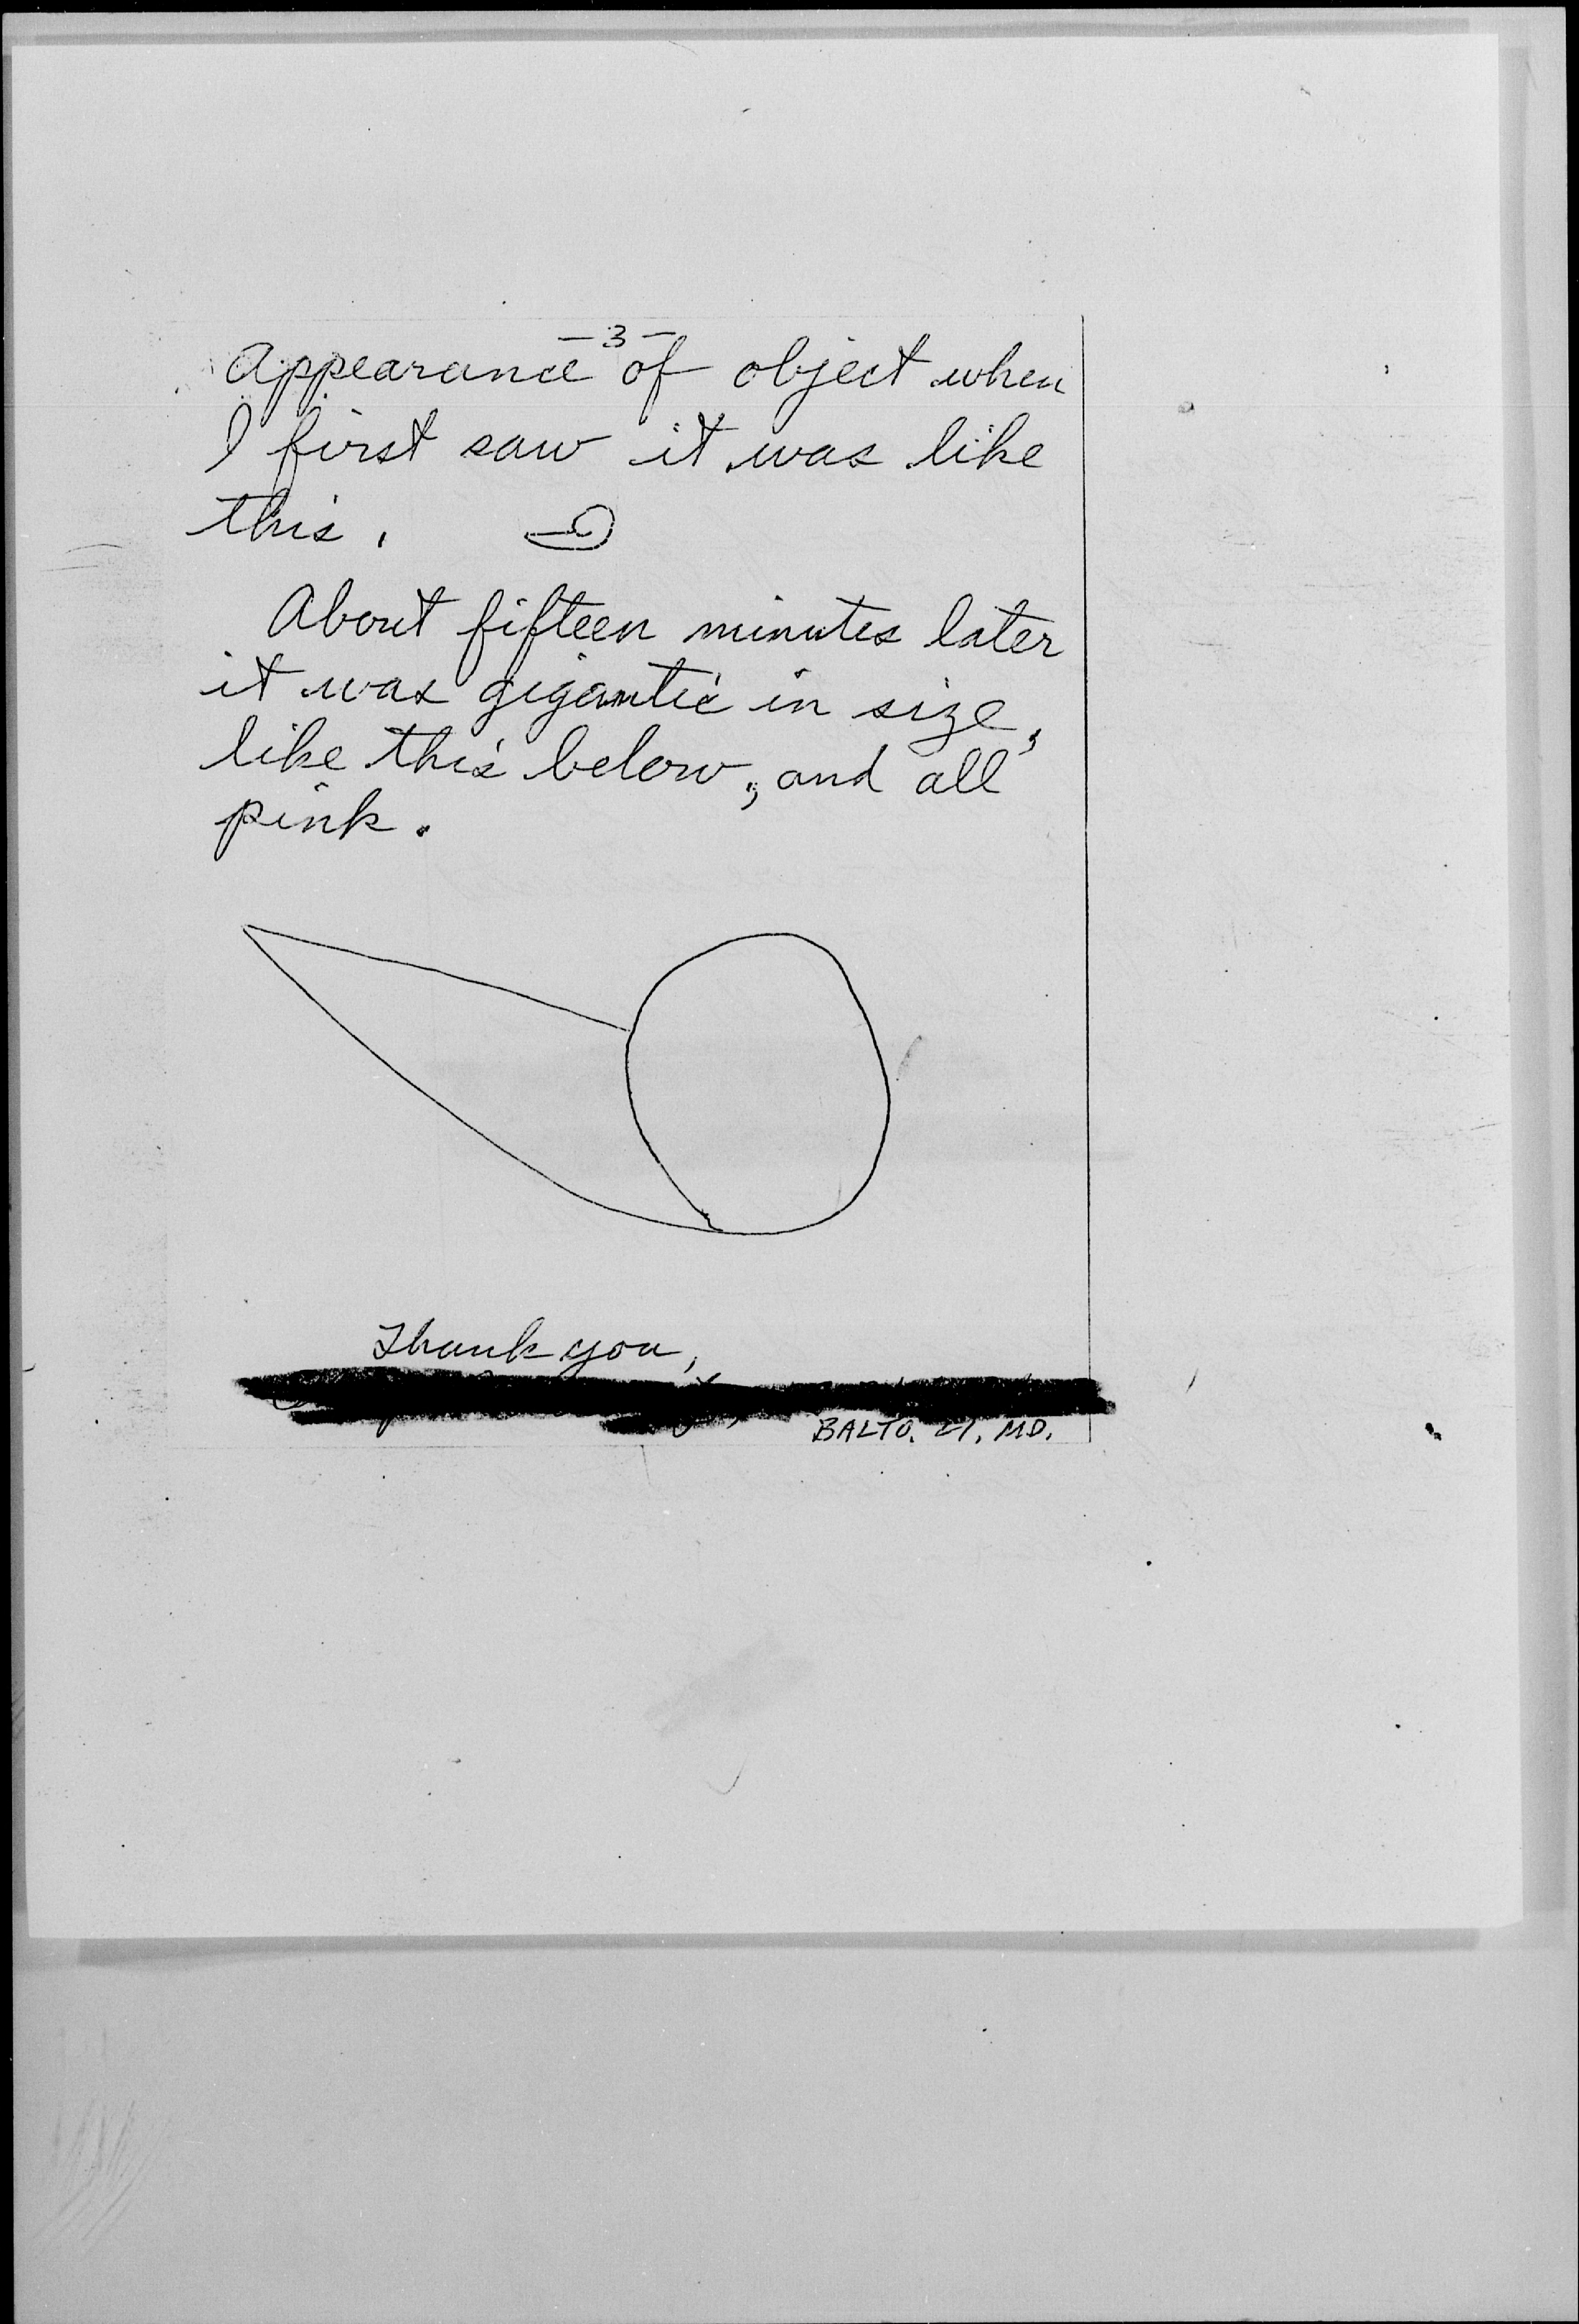 -3-
Appearance of object when
I first saw it was like
this.
About fifteen minutes later
it was gigantic in size,
like this below, and all
pink.
Thank you,
BALTO. 21. MD.